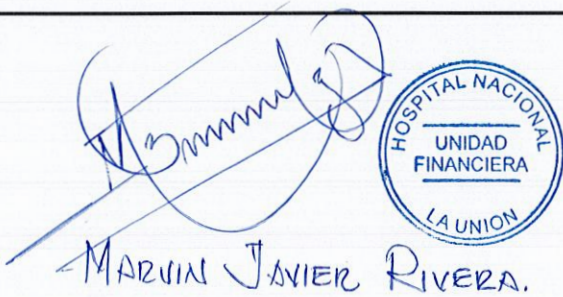 HOSPITAL NACIONAL
UNIDAD
FINANCIERA
LA UNION
MARVIN JAVIER RIVERA.